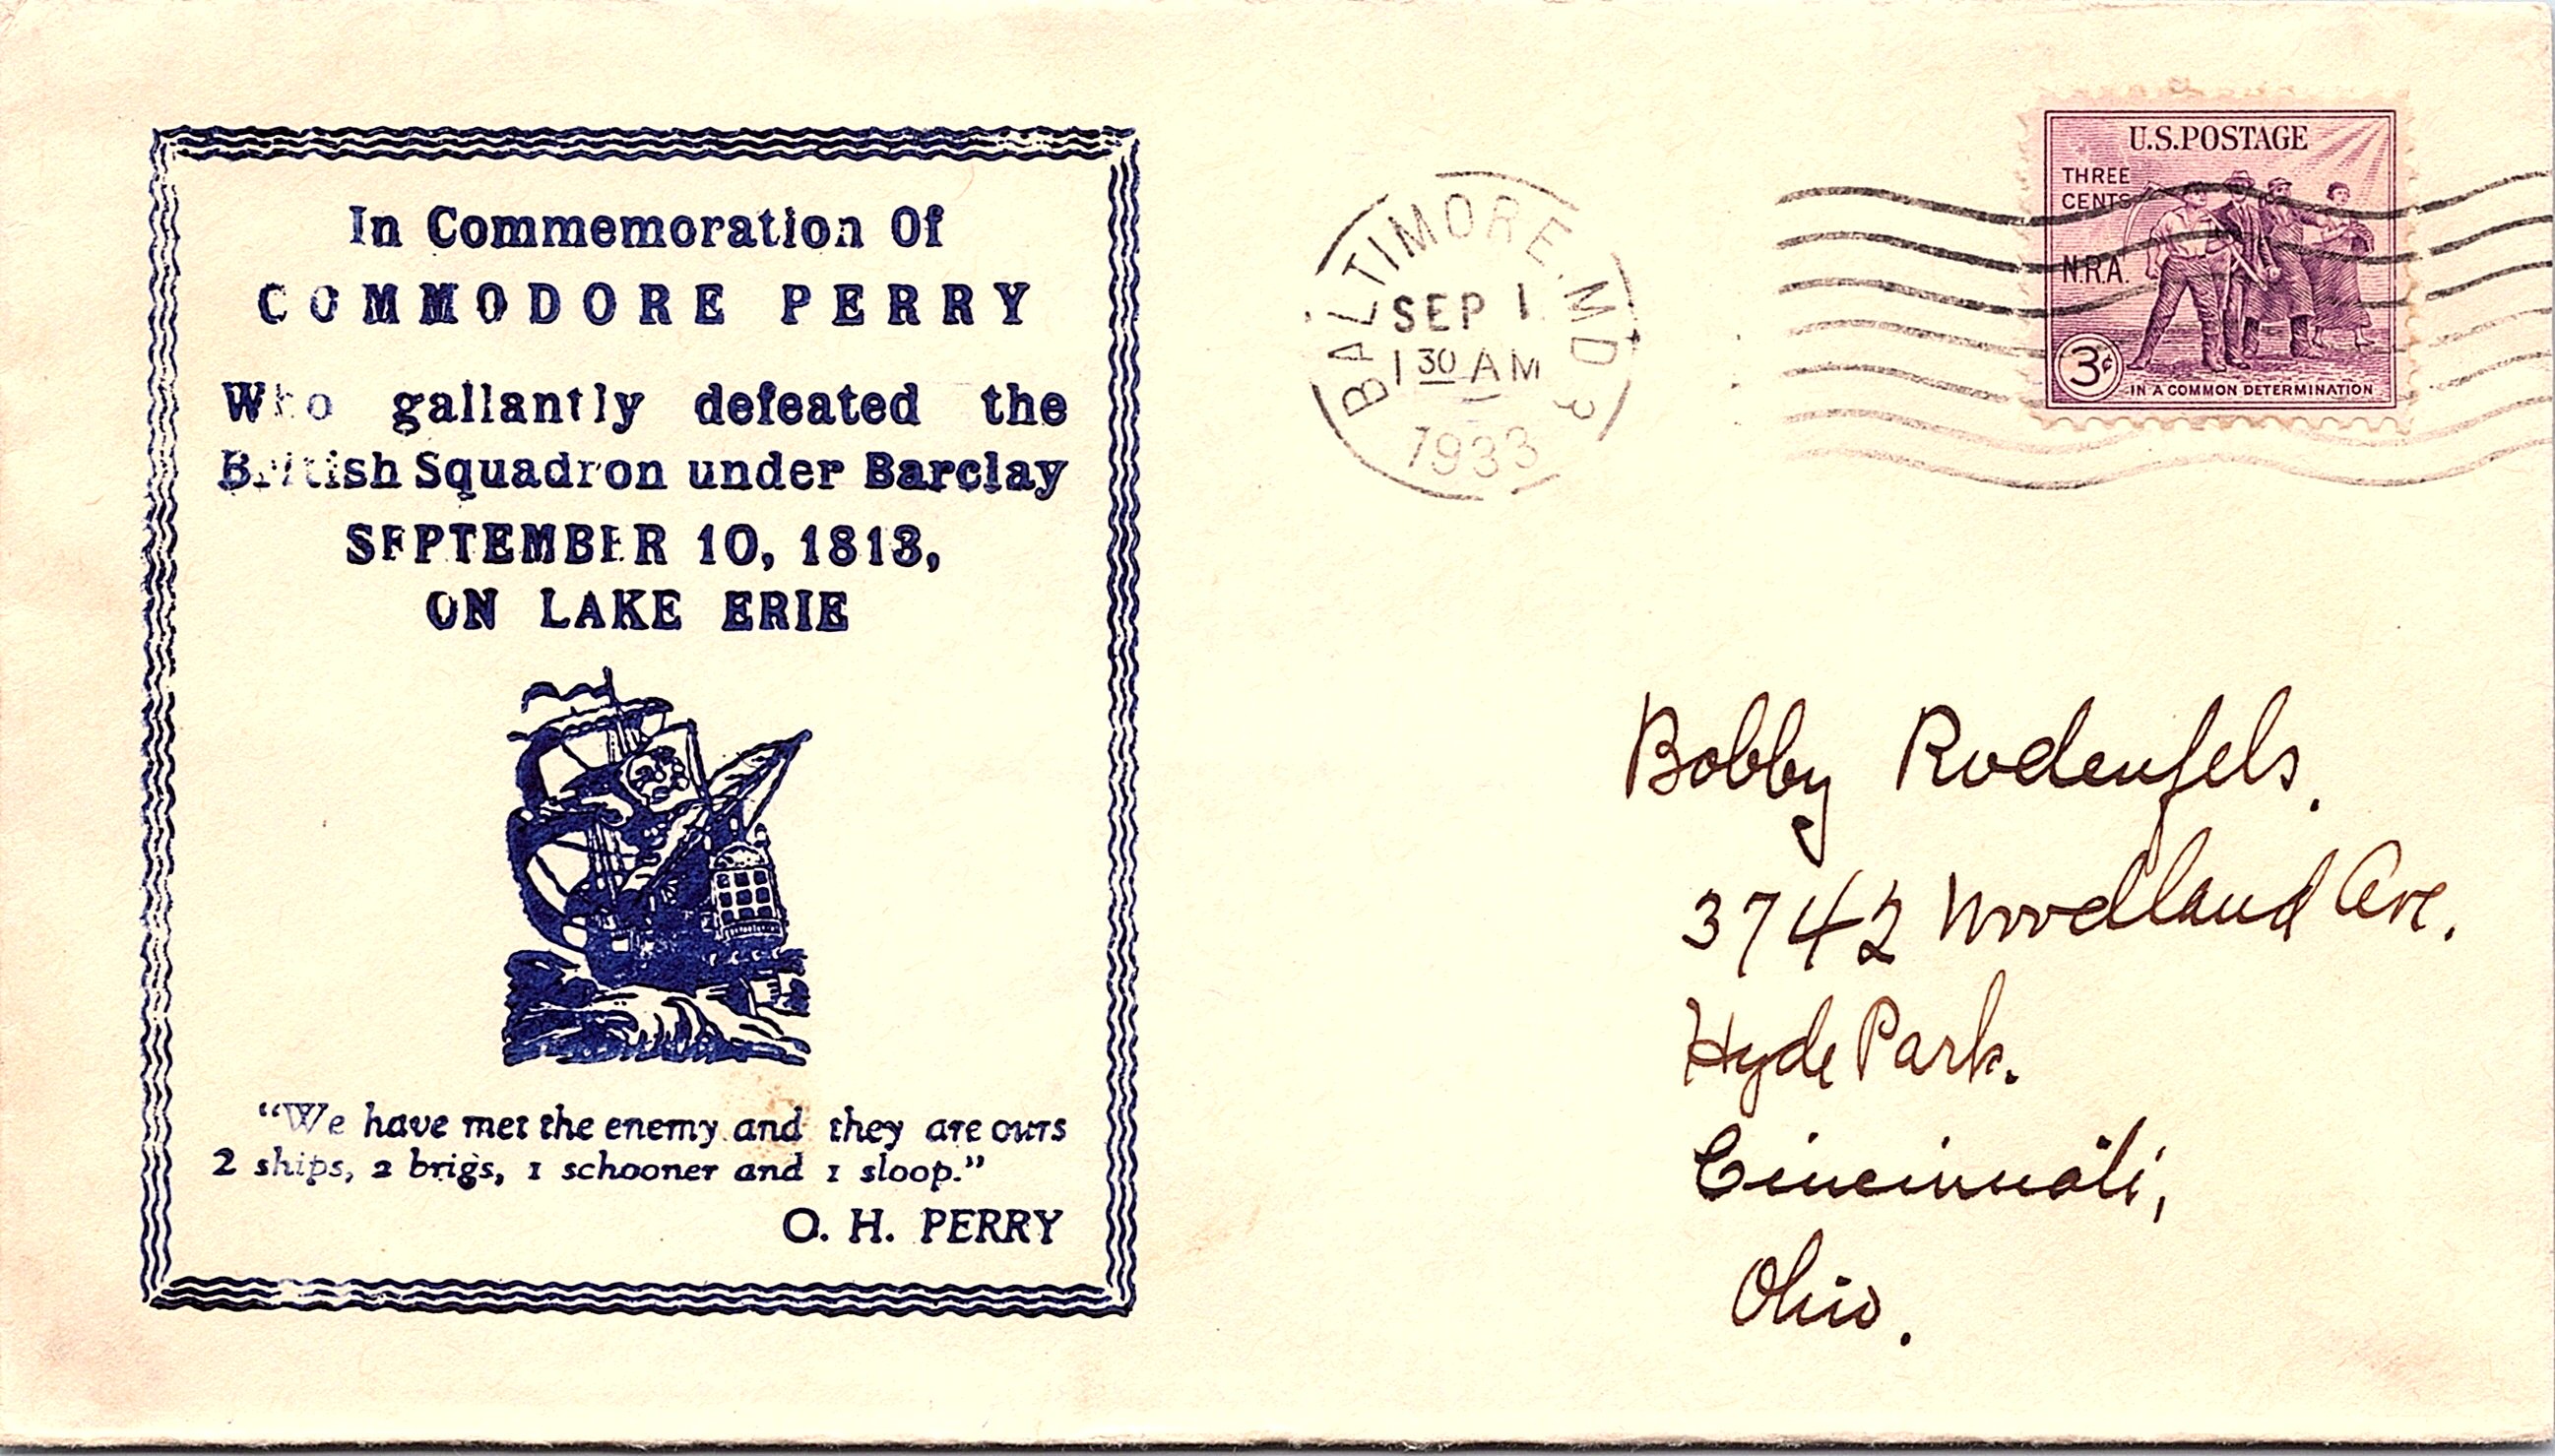 In Commemoration Of
COMMODORE PERRY
Who gallantly defeated the
British Squadron under Barclay
SEPTEMBER 10, 1813,
ON LAKE ERIE
"We have met the enemy and they are ours
2 ships, 2 brigs, 1 schooner and 1 sloop."
O. H. PERRY
BALTIMORE, MD
SEP 1
1 30 AM
1933
U.S. POSTAGE
THREE
CENTS
N.R.A.
3¢
IN A COMMON DETERMINATION
Bobby Rodenfels.
3742 Woodland Ave.
Hyde Park.
Cincinnati,
Ohio.